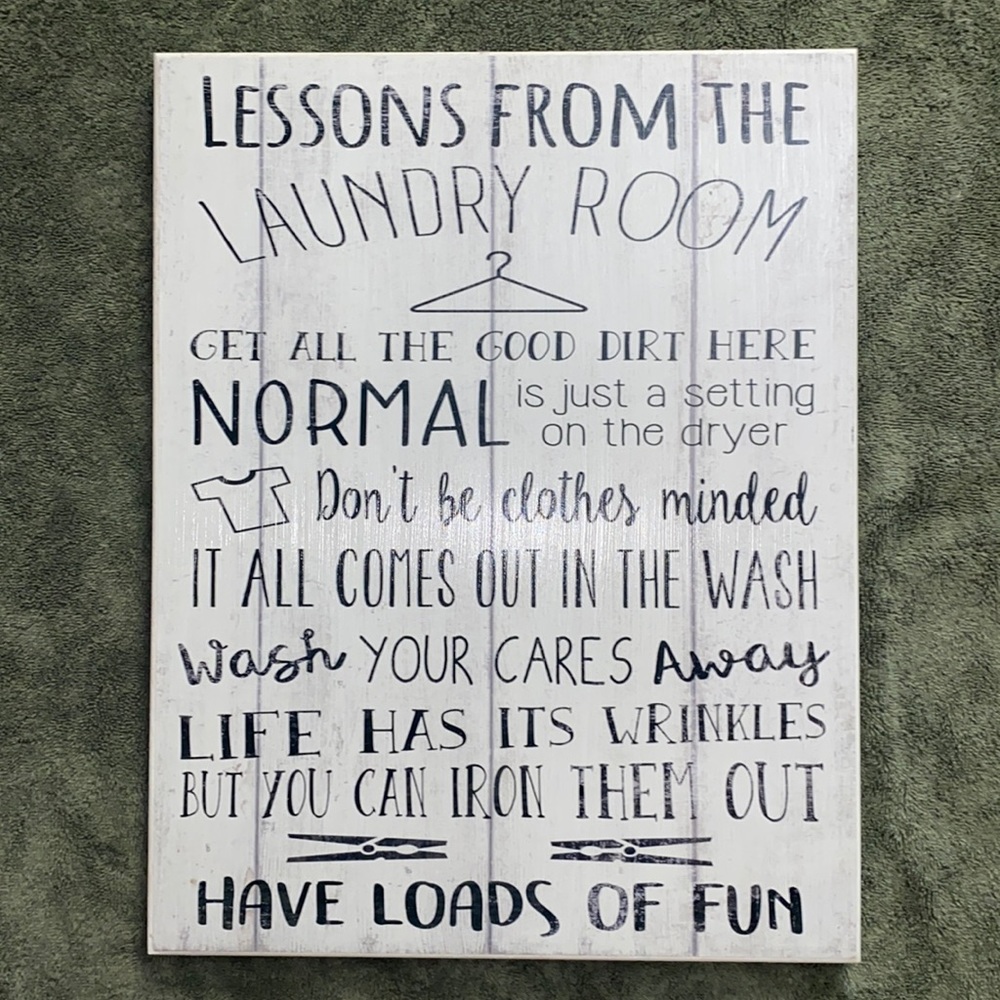 LESSONS FROM THE
LAUNDRY ROOM
GET ALL THE GOOD DIRT HERE
NORMAL is just a setting
on the dryer
Don't be clothes minded
IT ALL COMES OUT IN THE WASH
Wash YOUR CARES Away
LIFE HAS ITS WRINKLES
BUT YOU CAN IRON THEM OUT
HAVE LOADS OF FUN